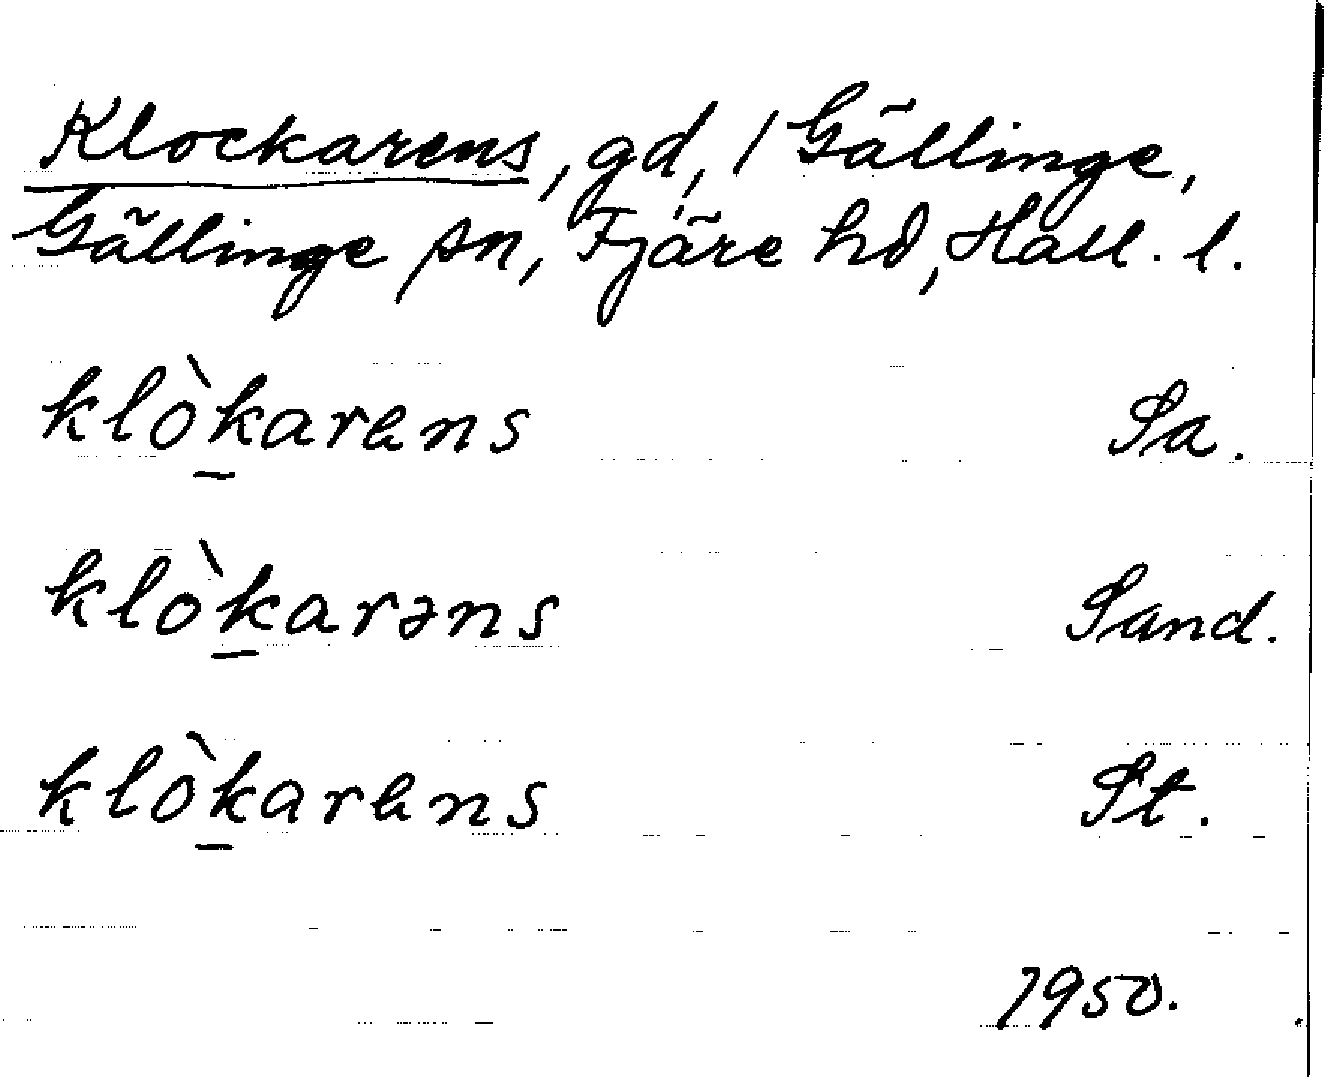 Klockarens, gd, 1 Gällinge,
Gällinge sn, Fjäre hd, Hall. l.
klòk̠arens Sa.
klòk̠arəns Sand.
klòk̠arens St.
1950.